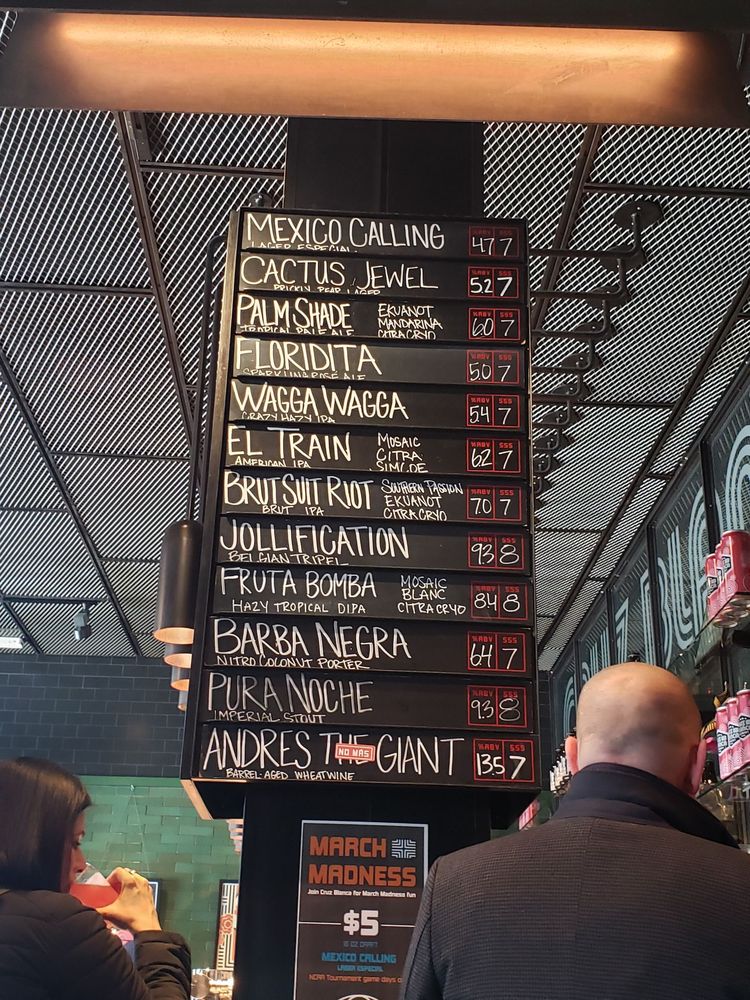 MEXICO CALLING
LAGER ESPECIAL
%ABV $$$
4.7 7
CACTUS JEWEL
PRICKLY PEAR LAGER
%ABV $$$
5.2 7
PALM SHADE
TROPICAL PALE ALE
EKUANOT
MANDARINA
CITRA CRYO
%ABV $$$
6.0 7
FLORIDITA
SPARKLING ROSÉ ALE
%ABV $$$
5.0 7
WAGGA WAGGA
CRAZY HAZY IPA
%ABV $$$
5.4 7
EL TRAIN
AMERICAN IPA
MOSAIC
CITRA
SIMCOE
%ABV $$$
6.2 7
BRUT SUIT RIOT
BRUT IPA
SOUTHERN PASSION
EKUANOT
CITRA CRYO
%ABV $$$
7.0 7
JOLLIFICATION
BELGIAN TRIPEL
%ABV $$$
9.3 8
FRUTA BOMBA
HAZY TROPICAL DIPA
MOSAIC
BLANC
CITRA CRYO
%ABV $$$
8.4 8
BARBA NEGRA
NITRO COCONUT PORTER
%ABV $$$
6.4 7
PURA NOCHE
IMPERIAL STOUT
%ABV $$$
9.3 8
ANDRES THE GIANT
NO MAS
BARREL-AGED WHEATWINE
%ABV $$$
13.5 7
MARCH
MADNESS
Join Cruz Blanca for March Madness fun
$5
16 OZ DRAFT
MEXICO CALLING
LAGER ESPECIAL
NCAA Tournament game days